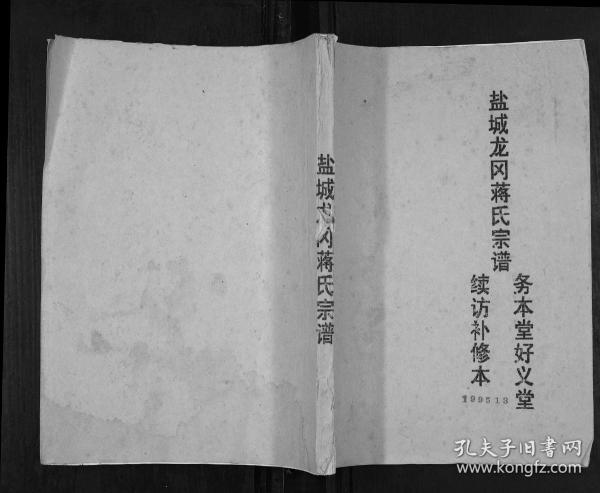 盐城龙冈蒋氏宗谱
务本堂好义堂
续访补修本
199513
盐城龙冈蒋氏宗谱
孔夫子旧书网
www.kongfz.com